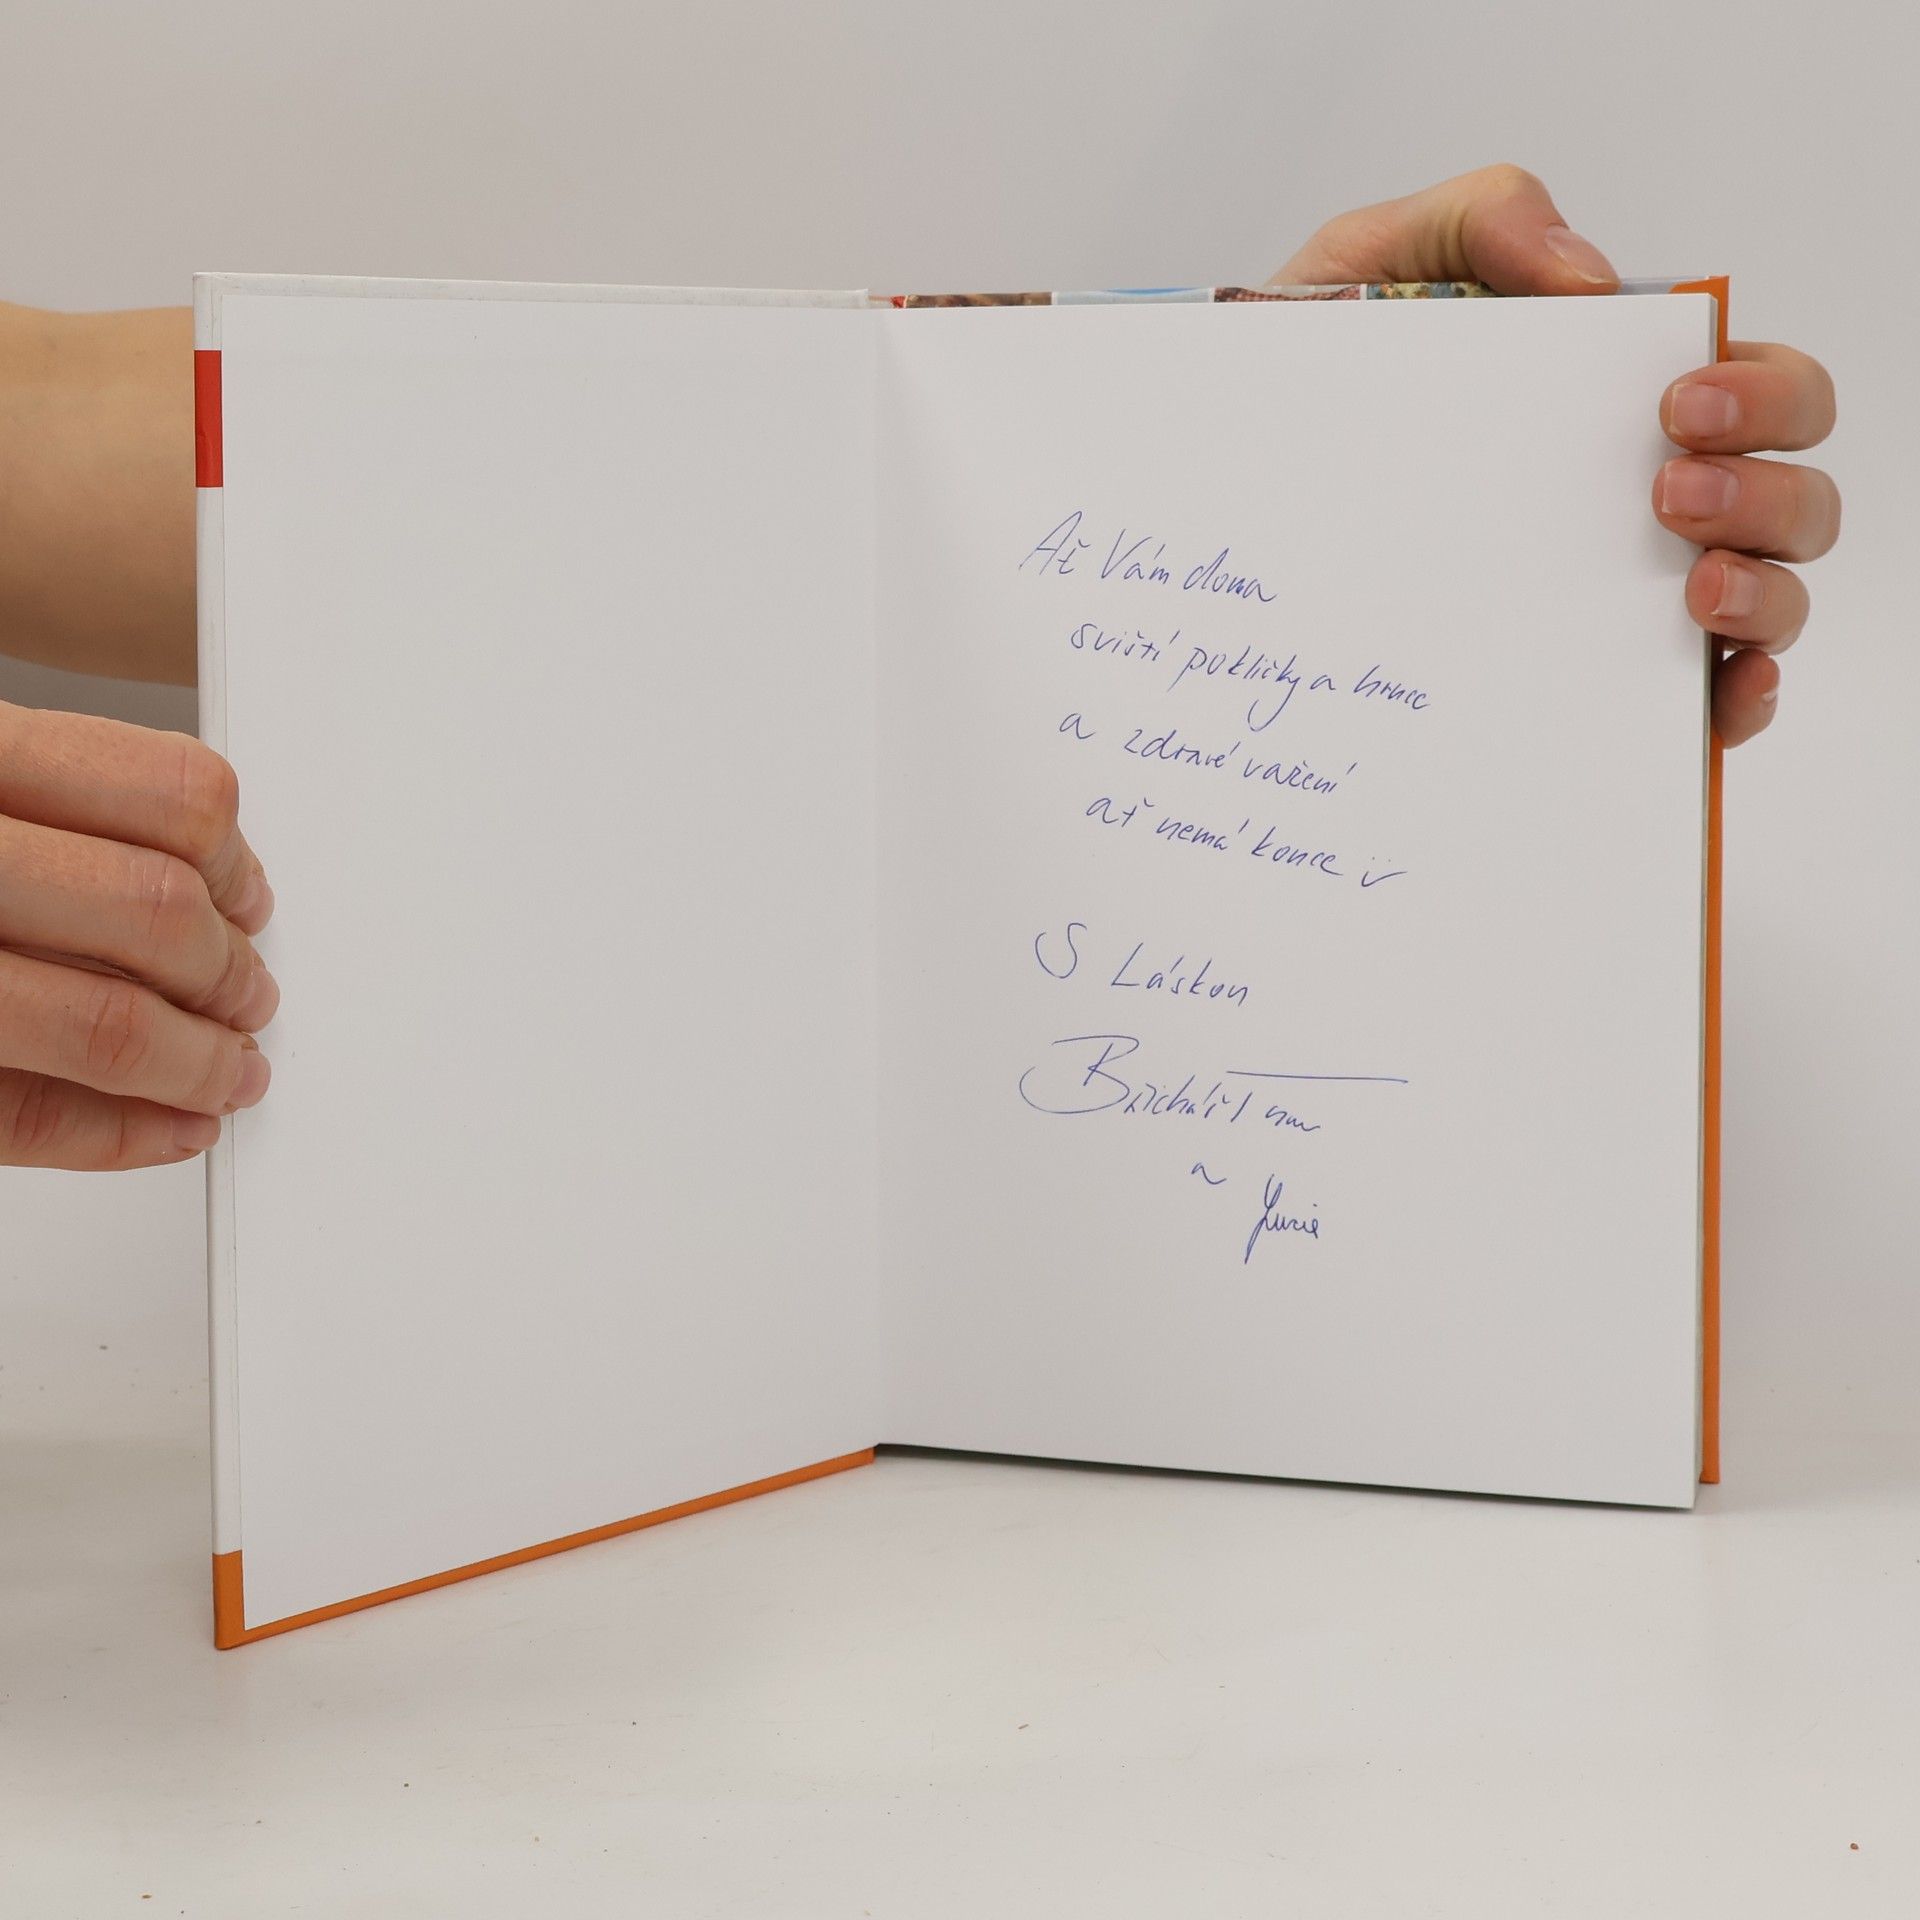 Ať Vám doma
sviští pokličky a hrnce
a zdravé vaření
ať nemá konce
S Láskou
a Lucie